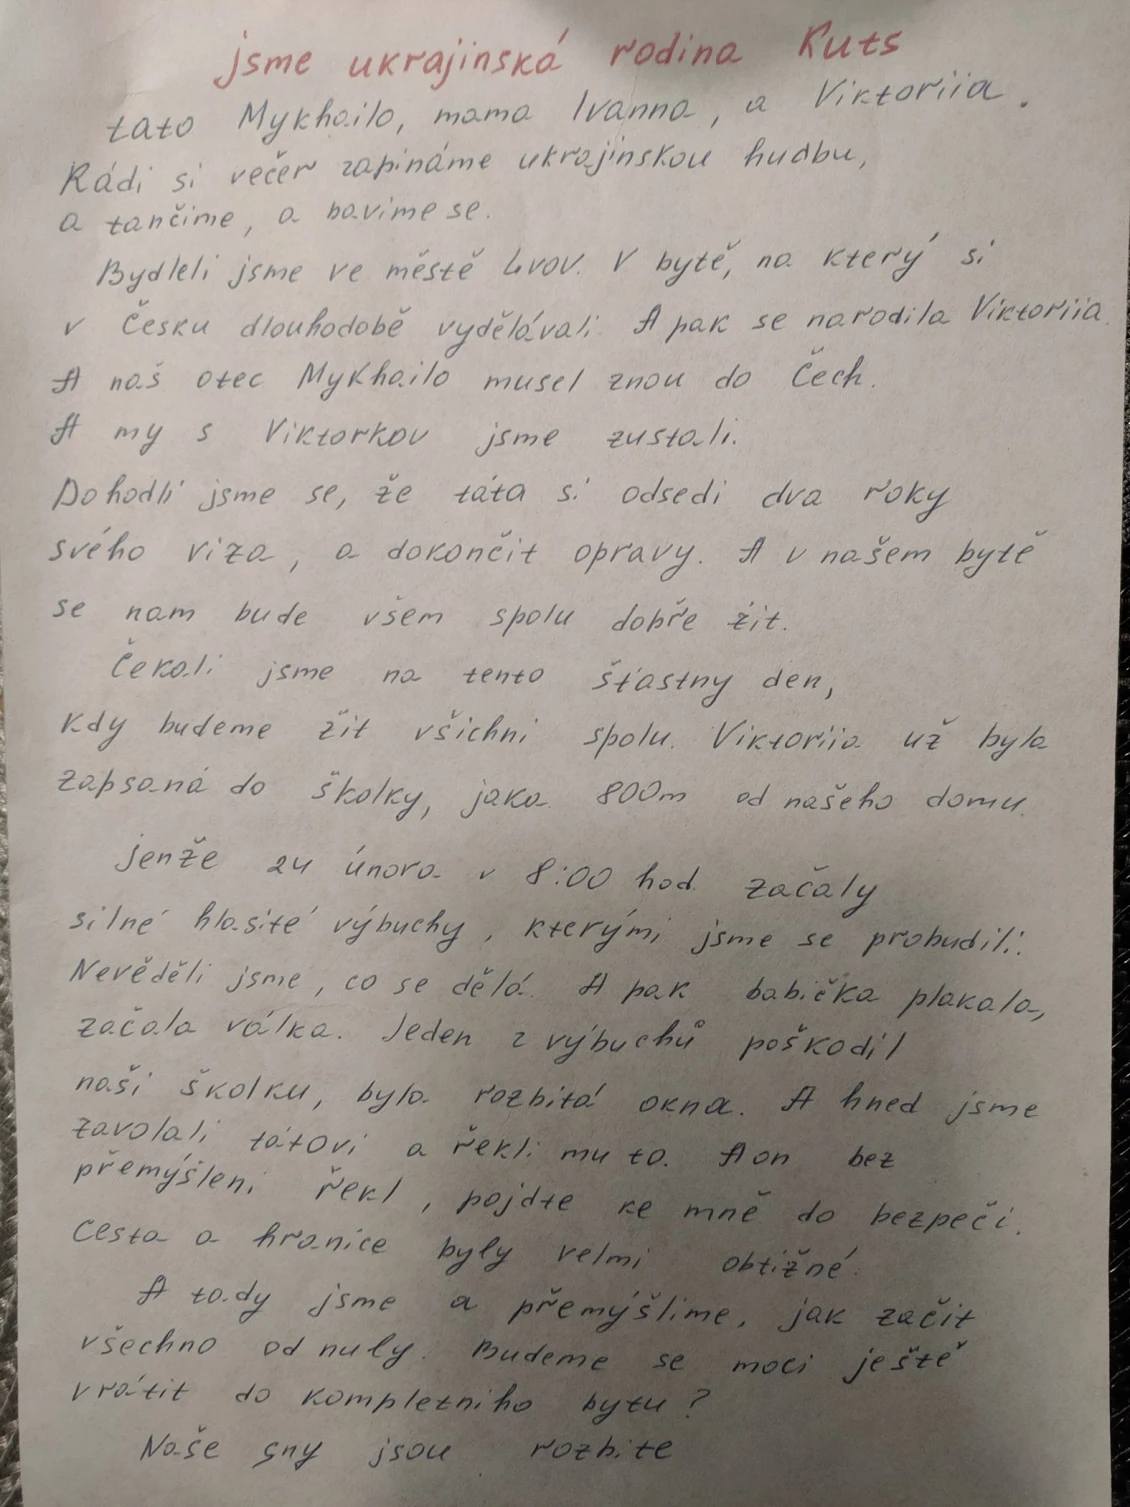 jsme ukrajinská rodina Kuts
tato Mykhailo, mama Ivanna, a Viktoriia.
Rádi si večer zapínáme ukrajinskou hudbu,
a tančime, a bavime se.
Bydleli jsme ve městě Lvov. V bytě, na který si
v Česku dlouhodobě vydělávali. A pak se narodila Viktoriia.
A naš otec Mykhailo musel znou do Čech.
A my s Viktorkov jsme zustali.
Dohodli jsme se, že táta si odsedi dva roky
svého viza, a dokončit opravy. A v našem bytě
se nam bude všem spolu dobře žit.
Čekali jsme na tento šťastny den,
kdy budeme žit všichni spolu. Viktoriia už byla
zapsaná do školky, jaka 800m od našeho domu.
jenže 24 února v 8:00 hod. začaly
silné hlasité výbuchy, kterými jsme se probudili.
Nevěděli jsme, co se dělá. A pak babička plakala,
začala válka. Jeden z výbuchů poškodil
naši školku, byla rozbitá okna. A hned jsme
zavolali tátovi a řekli mu to. A on bez
přemýšleni řekl, pojdte ke mně do bezpeči.
Cesta a hranice byly velmi obtižné.
A tady jsme a přemýšlime, jak začit
všechno od nuly. Budeme se moci ještě
vrátit do kompletniho bytu?
Naše sny jsou rozbite